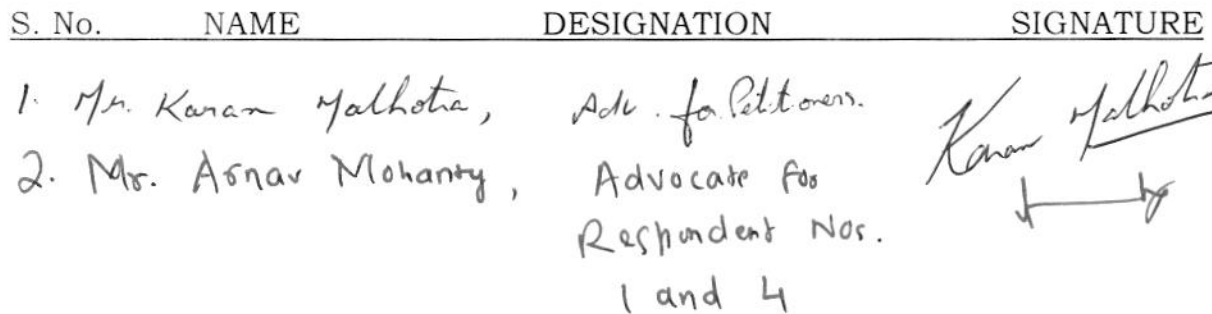 S. No. NAME DESIGNATION SIGNATURE
1. Mr. Karan Malhotra, Adv. for Petitioners. Karan Malhotra
2. Mr. Arnav Mohanty, Advocate for
Respondent Nos.
1 and 4